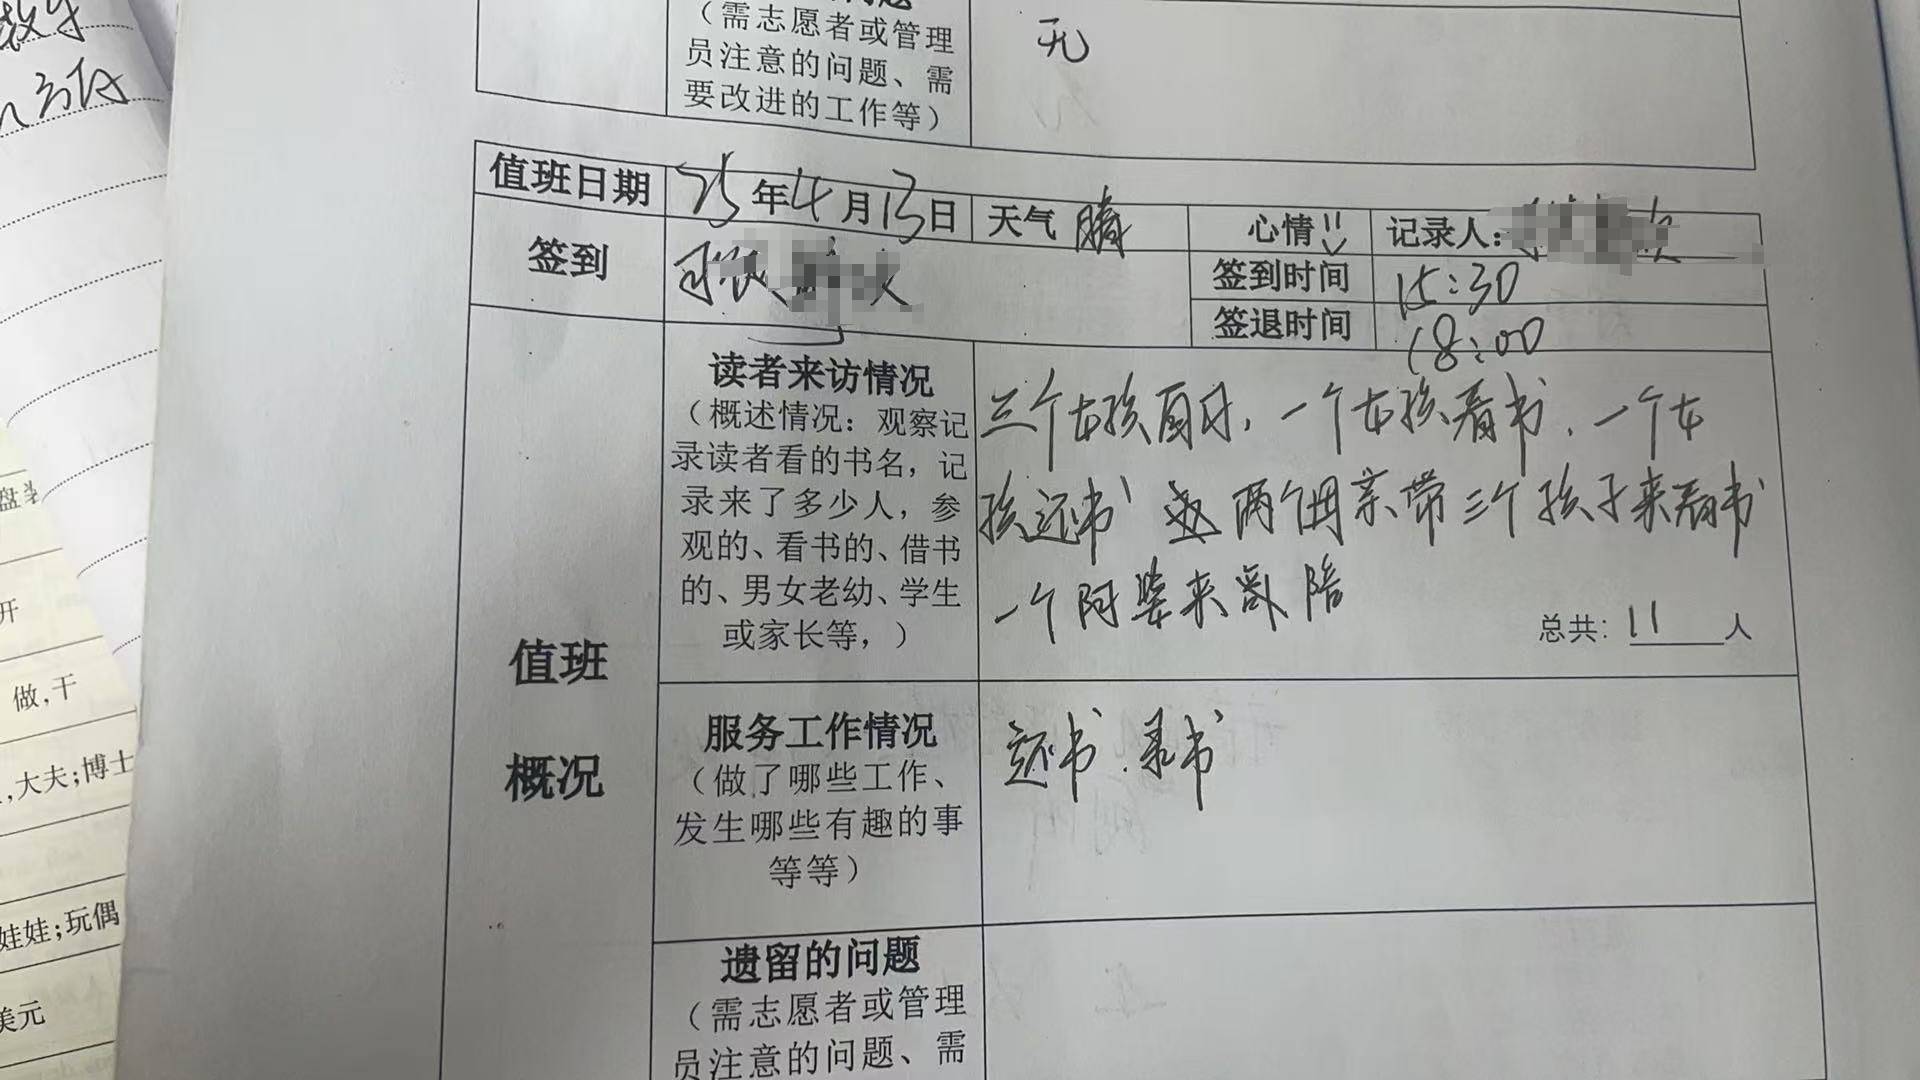 （需志愿者或管理
员注意的问题、需
要改进的工作等）
无
值班日期 25年4月13日 天气 晴 心情 记录人：
签到
签到时间 15:30
签退时间 18:00
值班
概况
读者来访情况
（概述情况：观察记
录读者看的书名，记
录来了多少人，参
观的、看书的、借书
的、男女老幼、学生
或家长等，）
三个女孩 一个女孩看书、一个女
孩还书 两个母亲带三个孩子来看书
一个阿婆来 陪
总共：11人
服务工作情况
（做了哪些工作、
发生哪些有趣的事
等等）
还书、录书
遗留的问题
（需志愿者或管理
员注意的问题、需
开
做,干
大夫;博士
娃娃;玩偶
美元